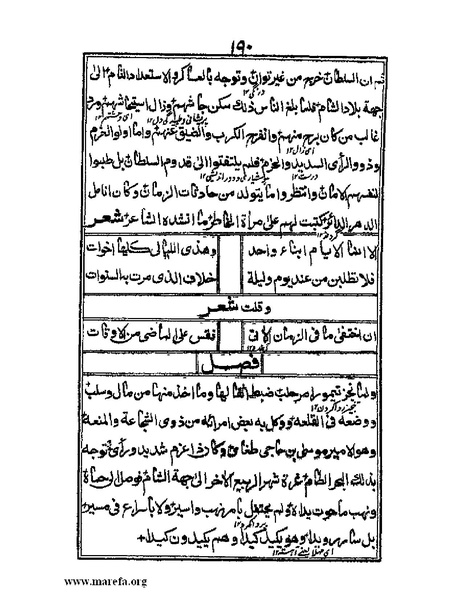 ١٩٠
ثم ان السلطان خرج من غير توان وتوجه بالعساكر والاستعداد التام الى
جهة بلاد الشام فلما بلغ الناس ذلك سكن جاشهم وزال استيحاشهم ورد
غالب من كان برح منهم وانفرج الكرب والضيق عنهم واما اولوا العزم
وذوو الرأى السديد والحزم فلم يلتفتوا الى قدوم السلطان بل طلبوا
لنفسهم الامان وانتظروا ما يتولد من حادثات الزمان وكان انامل
الدهر الدائر كتبت لهم على مرآة الخاطر ما انشده الشاعر شعر
الا انما الايام ابناء واحد وهذى الليالى كلها اخوات
فلا تطلبن من عند يوم وليلة خلاف الذى مرت به السنوات
وقلت شعر
ان اختفى ما فى الزمان الاتى فقس على الماضى من الاوقات
فصل
ولما نجز تيمور امر حلب ضبط اثقالها وما اخذ منها من مال وسلب
ووضعه فى القلعة ووكل به بعض امرائه من ذوى الشجاعة والمنعة
وهو الامير موسى بن حاجى طغاى وكان ذا عزم شديد ورأى وتوجه
بذلك البحر الطام غرة شهر الربيع الاخر الى جهة الشام فوصل الى حماة
ونهب ما حوت يداه ولم يحتفل بامر نهب واسر ولا باسراع فى مسير
بل سار رويدا وهو يكيد كيدا وهم يكيدون كيدا
www.marefa.org